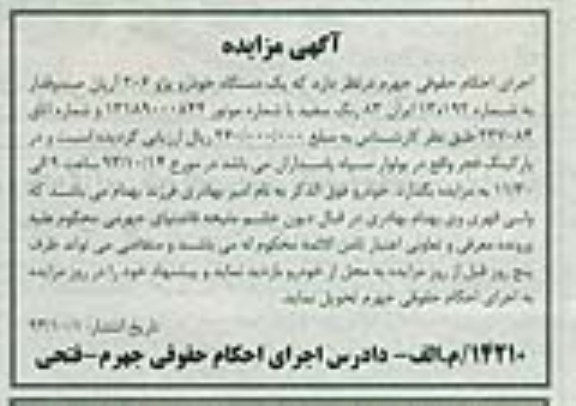 آگهی مزایده
اجرای احکام حقوقی جهرم درنظر دارد که یک دستگاه خودرو پژو ۲۰۶ آریان صندوقدار
به شماره ۱۹۲ ایران ۸۳ رنگ سفید با شماره موتور و شماره اتاق
طبق نظر کارشناس به مبلغ ریال ارزیابی گردیده است و در
پارکینگ فجر واقع در بولوار سپاه پاسداران می باشد در مورخ ۹۳/۱۰/۱۴ ساعت ۹ الی
۱۱/۳۰ به مزایده بگذارد. خودرو فوق الذکر به نام امیر بهادری فرزند بهنام می باشد که
ولی قهری وی بهنام بهادری در قبال دیون جهرمی محکوم علیه
پرونده معرفی و تعاونی اعتبار ثامن الائمه محکوم له می باشند و متقاضی می تواند ظرف
پنج روز قبل از روز مزایده به محل از خودرو بازدید نماید و پیشنهاد خود را در روز مزایده
به اجرای احکام حقوقی جهرم تحویل نماید.
تاریخ انتشار: ۹۳/۱۰/۱
۱۴۲۱۰/م.الف- دادرس اجرای احکام حقوقی جهرم-فتحی